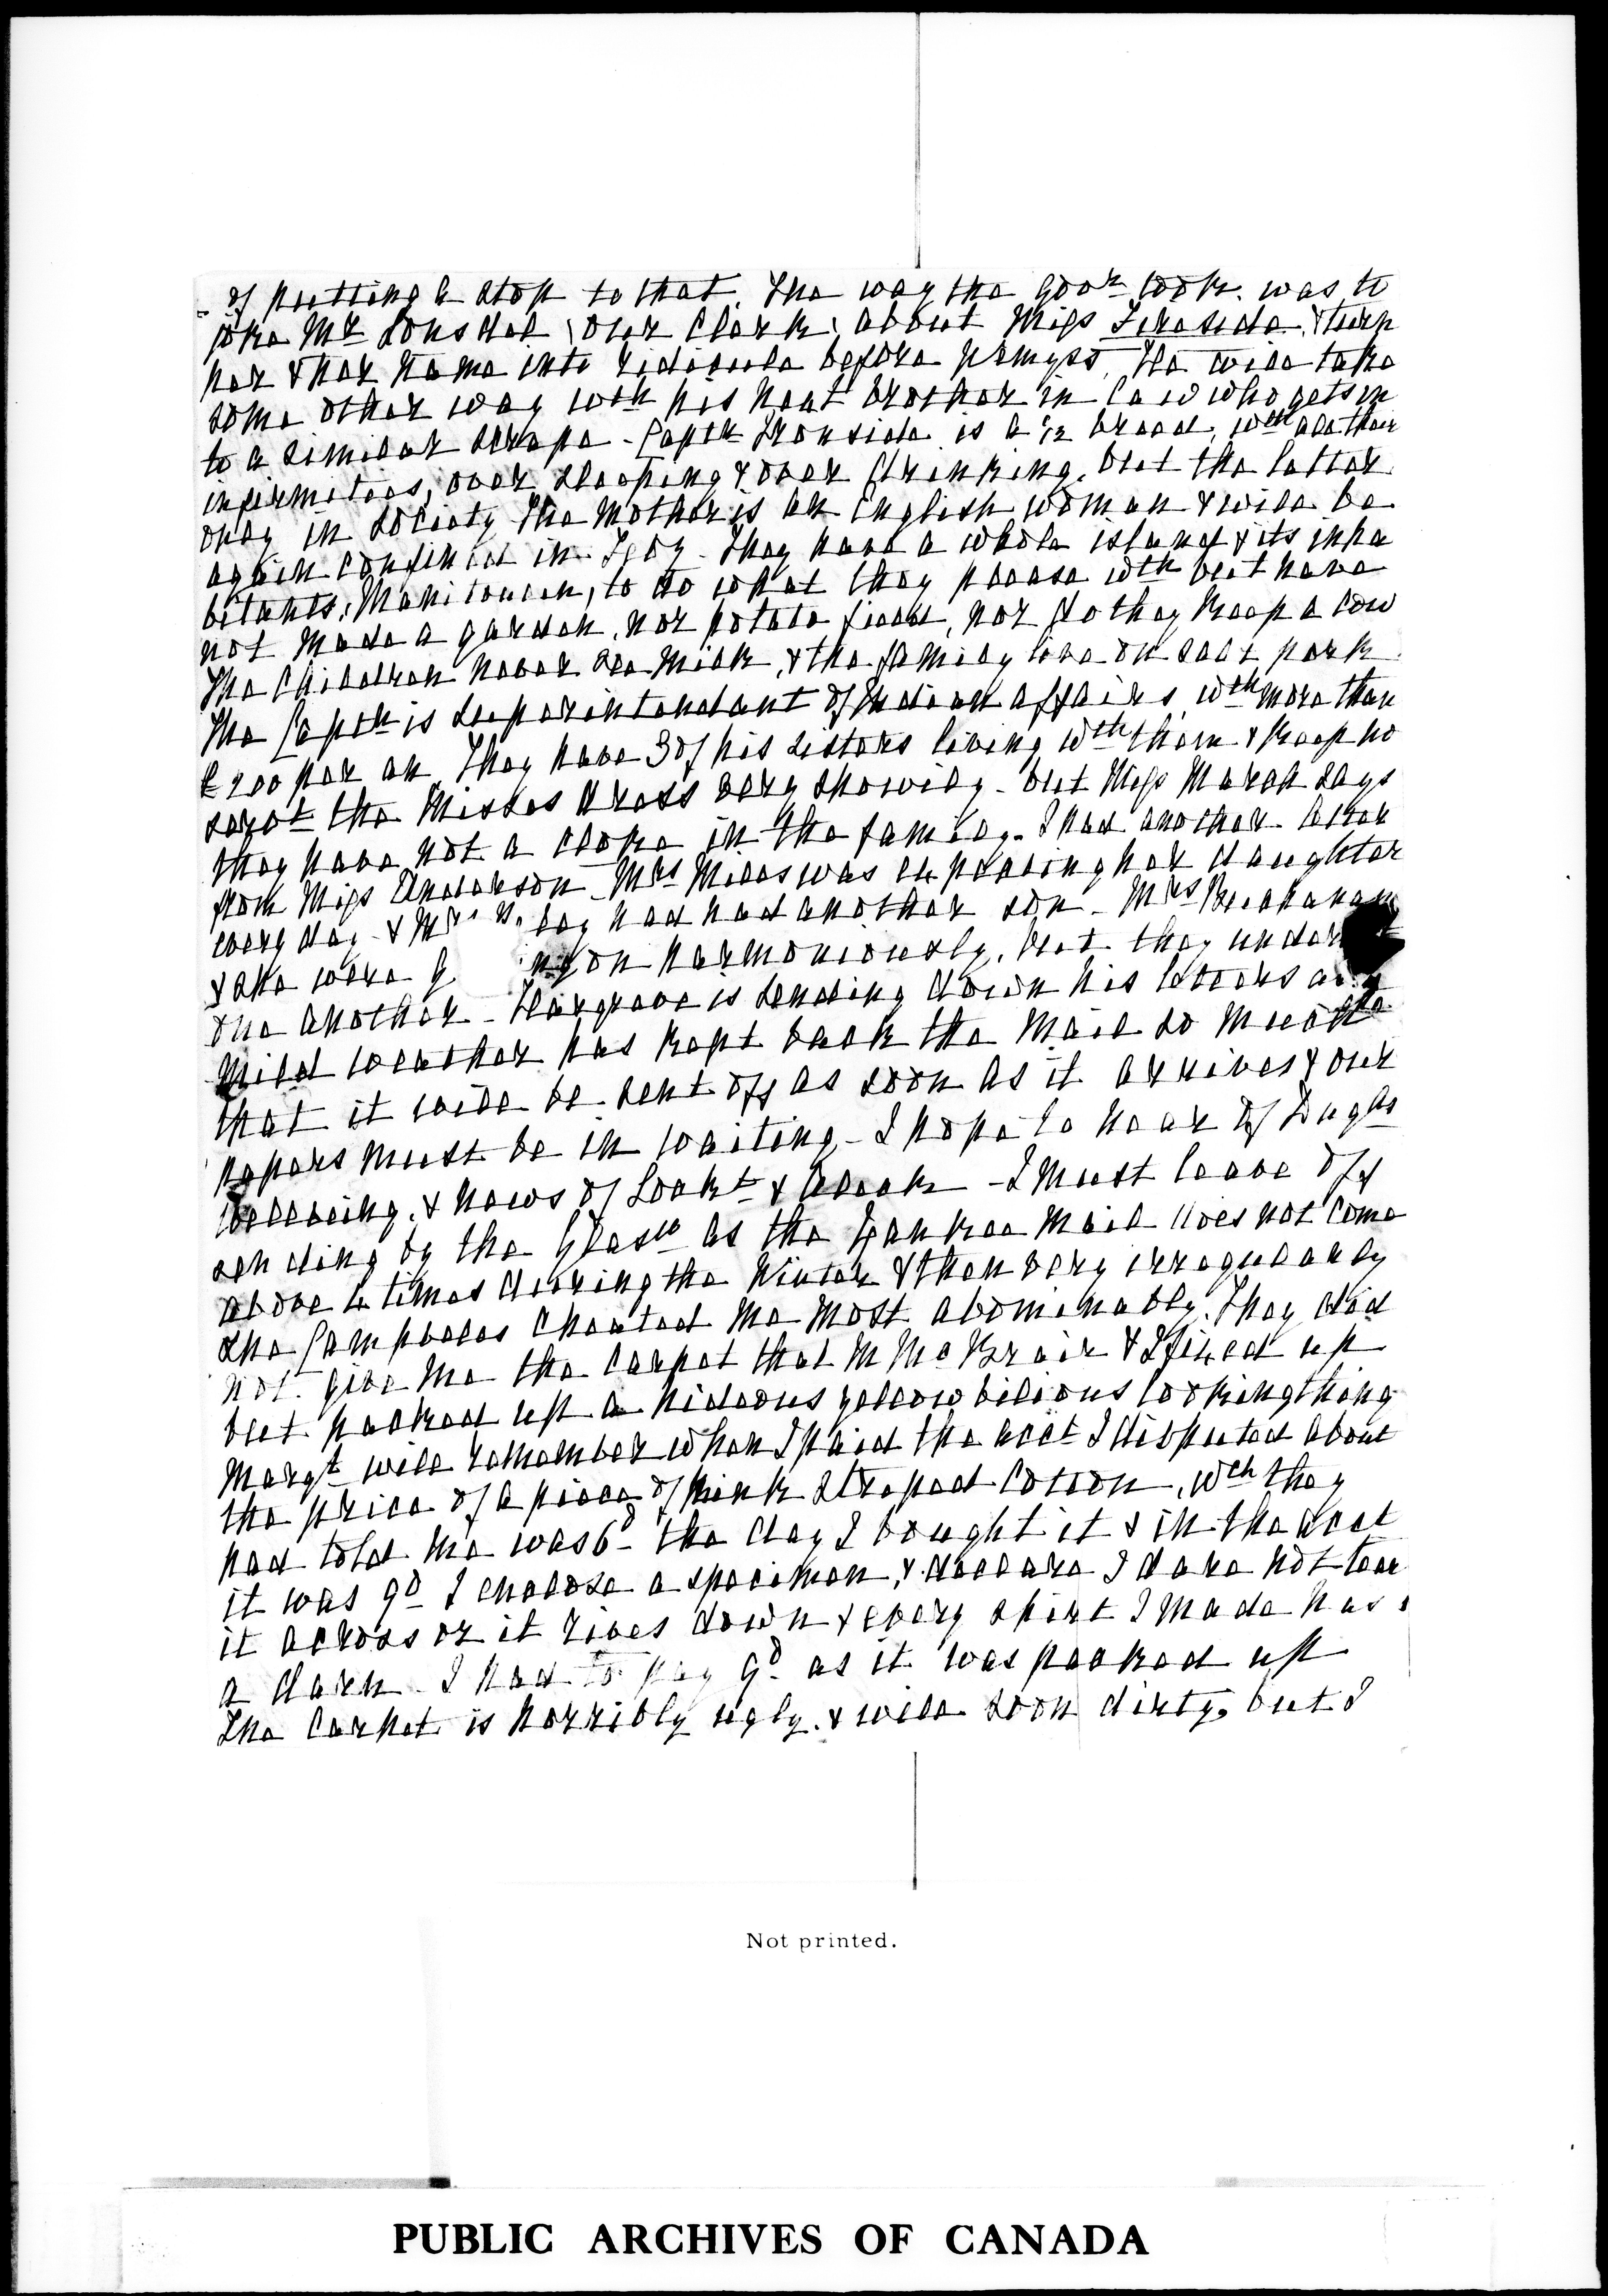 of putting a stop to that. The way the Govr took. was to
joke Mr Lonsdel (our Clark) about Miss Fireside, & turn
her & her name into ridicule before Wemyss, He will take
some other way wth his next brother in law who gets in
to a similar scrape - Captn Ironside is a ½ breed, wth all their
infirmities, over sleeping & over drinking, but the latter
only in society The Mother is an English woman & will be
again confined in Feby - They have a whole island & its inha
bitants, Manitoulin, to do what they please wth but have
not made a garden, nor potato field, nor do they keep a cow
The Children never see Milk, & the family live on salt pork
The Captn is Superintendant of Indian affairs, wth more than
£200 per an They have 3 of his sisters living wth them & keep no
servt the Misses dress very showily - but Miss Marsh says
they have not a cloke in the family - I had another letter
from Miss Anderson - Mrs Miles was expecting her daughter
every day - & Mrs ley had had another son - Mrs Buchanan
& she were g ng on harmoniously, but they under
one another - Hargrave is sending down his letters as
Mild weather has kept back the Mail so much
that it will be sent off as soon as it arrives & our
papers must be in waiting - I hope to hear of Hughs
wellbeing, & news of Lockt & Aleck - I must leave off
sending by the Glasw as the Yankee Mail does not come
above 4 times during the Winter & then very irregularly
The Campbells cheated me most abominably. They did
not give me the carpet that M McNair & I fixed up
but packed up a hideous yellow bilious looking thing
Margt will remember when I paid the acct I disputed about
the price of a piece of pink striped Cotton, wch they
had told me was 6d the day I bought it & in the acct
it was 9d I enclose a specimen, & declare I dare not tear
it across or it rives down & every shirt I made has
a darn - I had to pay 9d as it was packed up
The Carpet is horribly ugly, & will soon dirty, but I
Not printed.
PUBLIC ARCHIVES OF CANADA